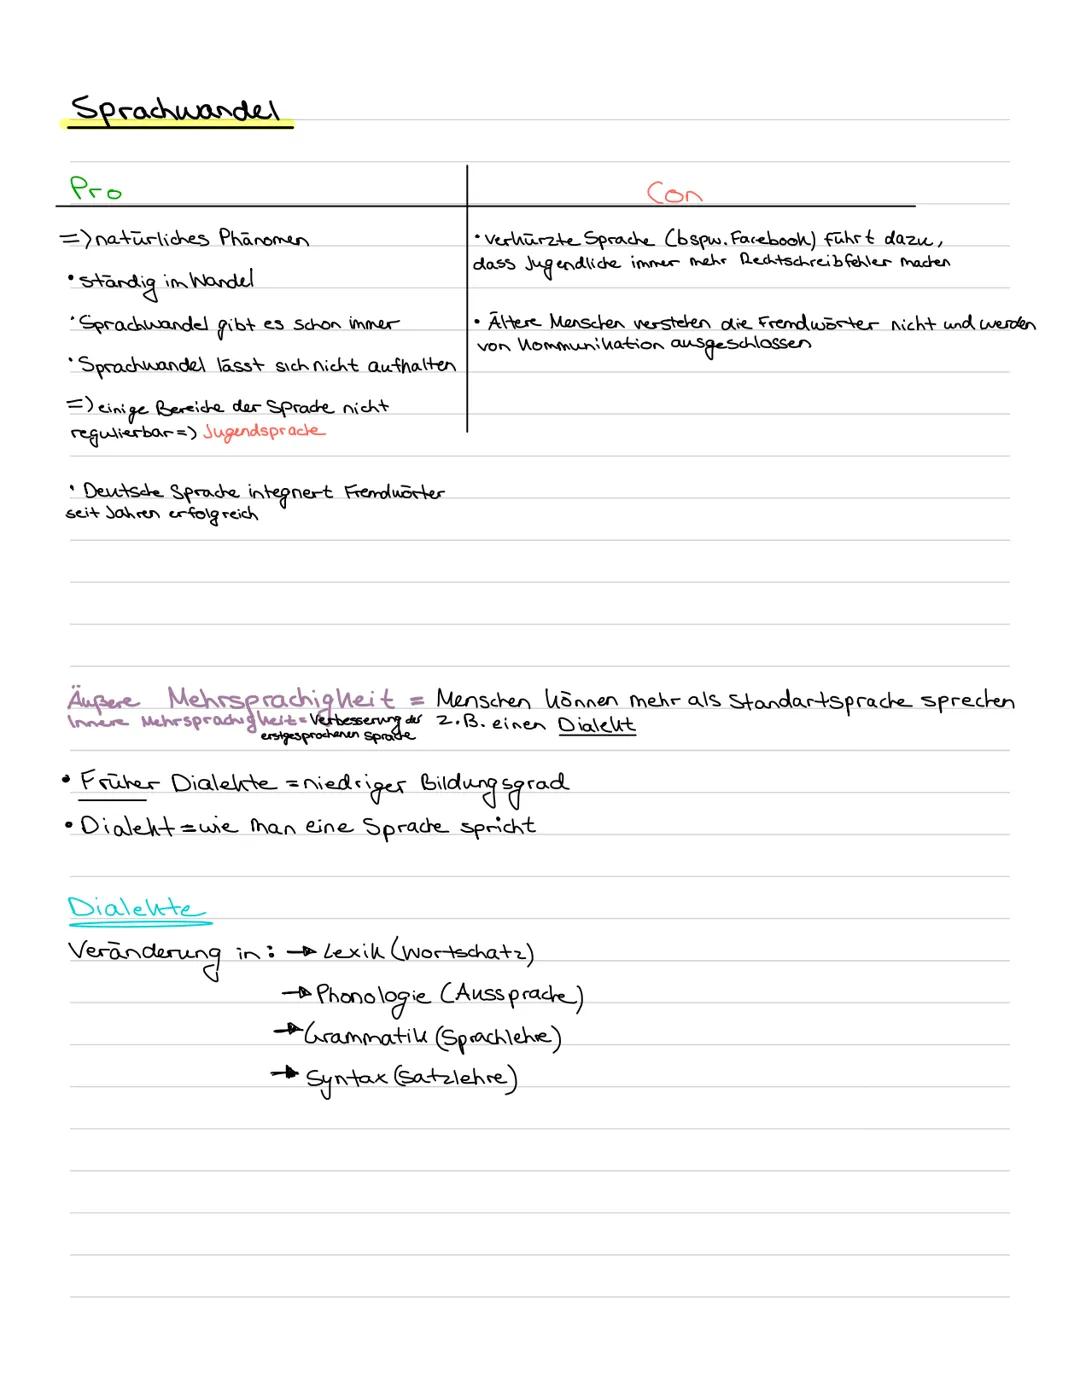 Sprachwandel
Pro
=> natürliches Phänomen
• ständig im Wandel
• Sprachwandel gibt es schon immer
• Sprachwandel lässt sich nicht aufhalten
=> einige Bereiche der Sprache nicht
regulierbar => Jugendsprache
• Deutsche Sprache integriert Fremdwörter
seit Jahren erfolgreich
Con
• verkürzte Sprache (bspw. Facebook) führt dazu,
dass Jugendliche immer mehr Rechtschreibfehler machen
• Ältere Menschen verstehen die Fremdwörter nicht und werden
von Kommunikation ausgeschlossen
Äußere Mehrsprachigkeit = Menschen können mehr als Standartsprache sprechen
z.B. einen Dialekt
Innere Mehrsprachigkeit = Verbesserung der
erstgesprochenen Sprache
• Früher Dialekte = niedriger Bildungsgrad
• Dialekt = wie man eine Sprache spricht
Dialekte
Veränderung in: → Lexik (Wortschatz)
→ Phonologie (Aussprache)
→ Grammatik (Sprachlehre)
→ Syntax (Satzlehre)